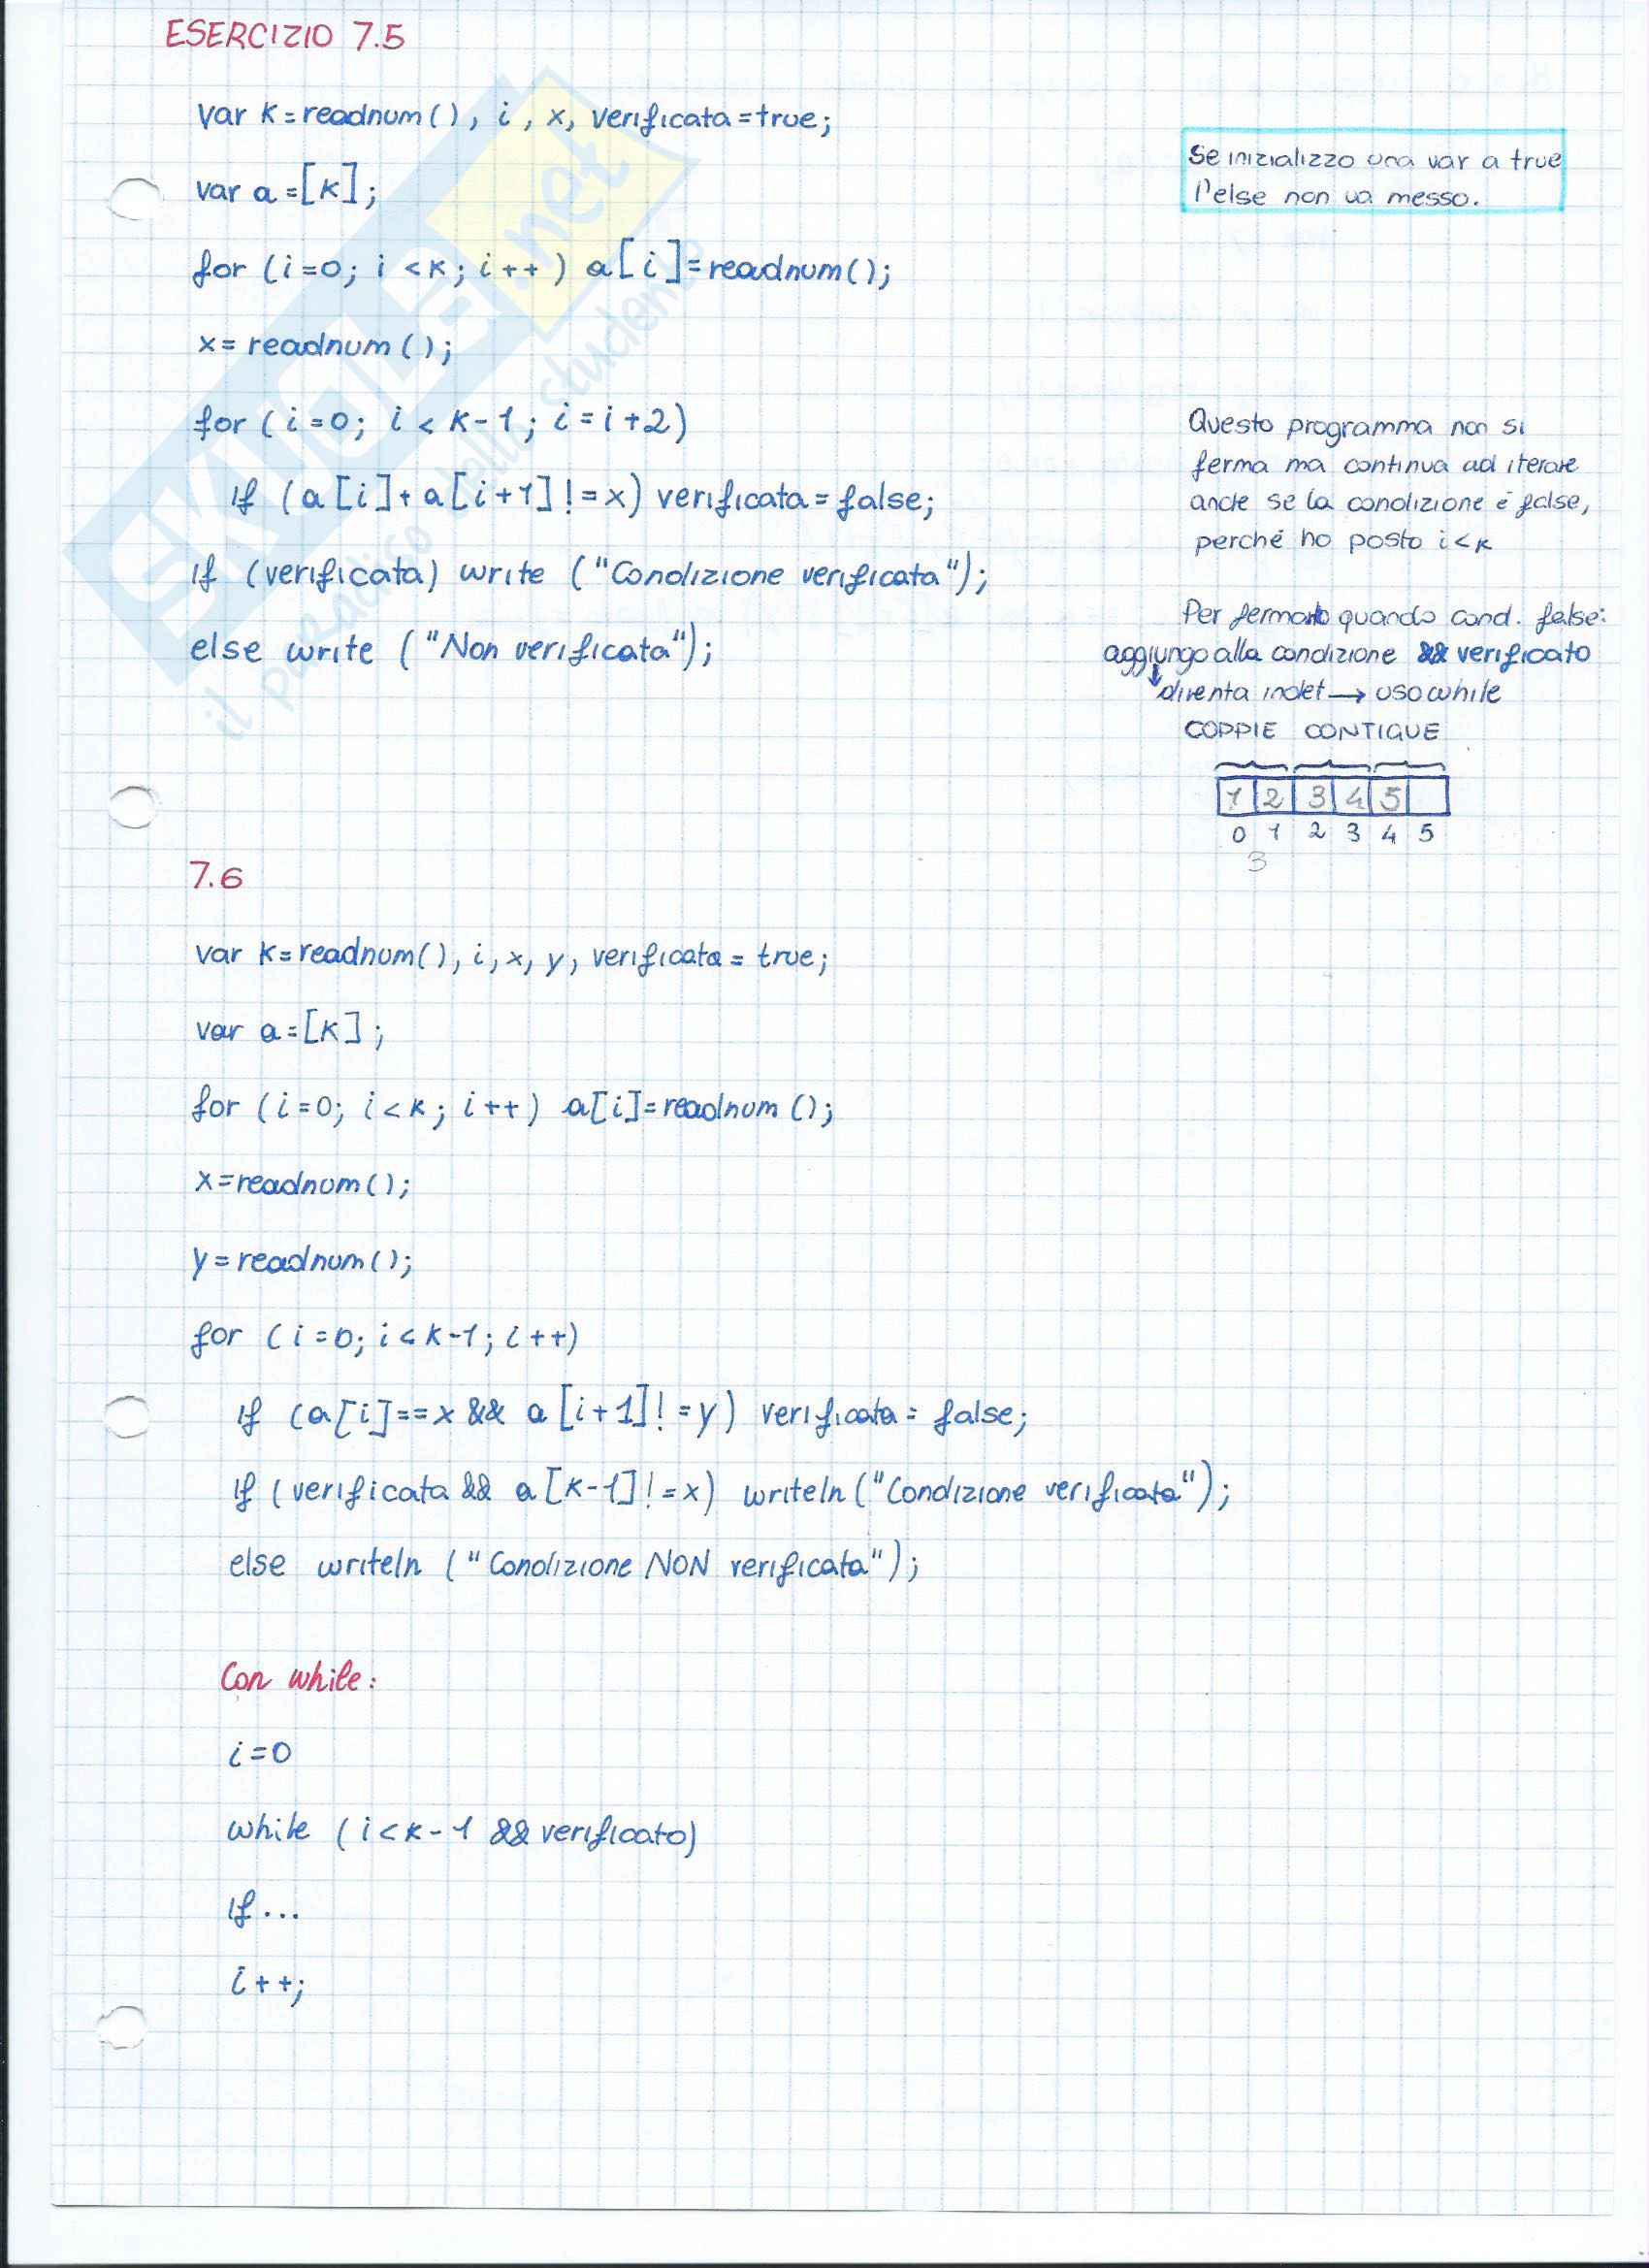 ESERCIZIO 7.5
var k=readnum(), i, x, verificata=true;
var a=[k];
for (i=0; i<k; i++) a[i]=readnum();
x=readnum();
for (i=0; i<k-1; i=i+2)
if (a[i]+a[i+1]!=x) verificata=false;
if (verificata) write ("Condizione verificata");
else write ("Non verificata");
Se inizializzo una var a true
l'else non va messo.
Questo programma non si
ferma ma continua ad iterare
anche se la condizione è false,
perché ho posto i<k
Per fermarlo quando cond. false:
aggiungo alla condizione && verificato
diventa indet → uso while
COPPIE CONTIGUE
1 2 3 4 5
0 1 2 3 4 5
3
7.6
var k=readnum(), i, x, y, verificata=true;
var a=[k];
for (i=0; i<k; i++) a[i]=readnum();
x=readnum();
y=readnum();
for (i=0; i<k-1; i++)
if (a[i]==x && a[i+1]!=y) verificata=false;
if (verificata && a[k-1]!=x) writeln("Condizione verificata");
else writeln ("Condizione NON verificata");
Con while:
i=0
while (i<k-1 && verificato)
if...
i++;
SKUOLA.net
il paradiso dello studente